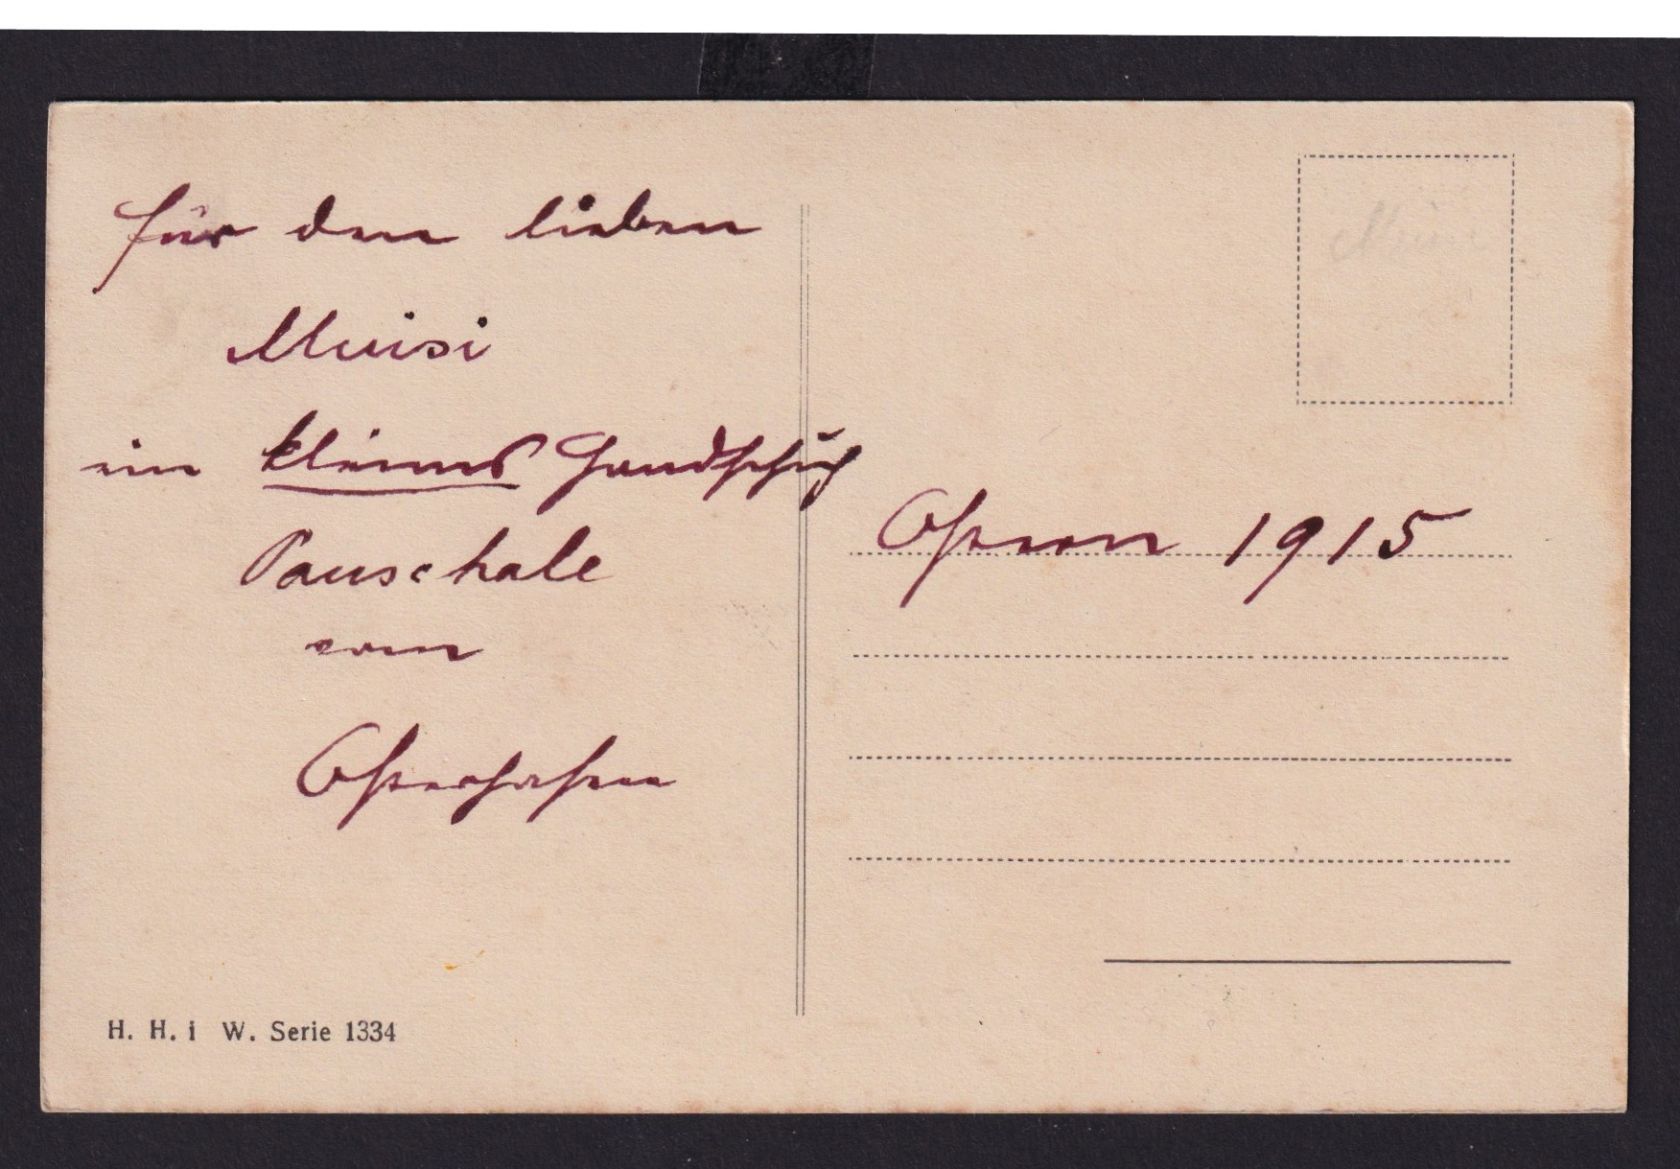 für den lieben
Muisi
ein kleines Handschuh
Pauschale
vom
Osterhasen
Ostern 1915
H. H. i W. Serie 1334